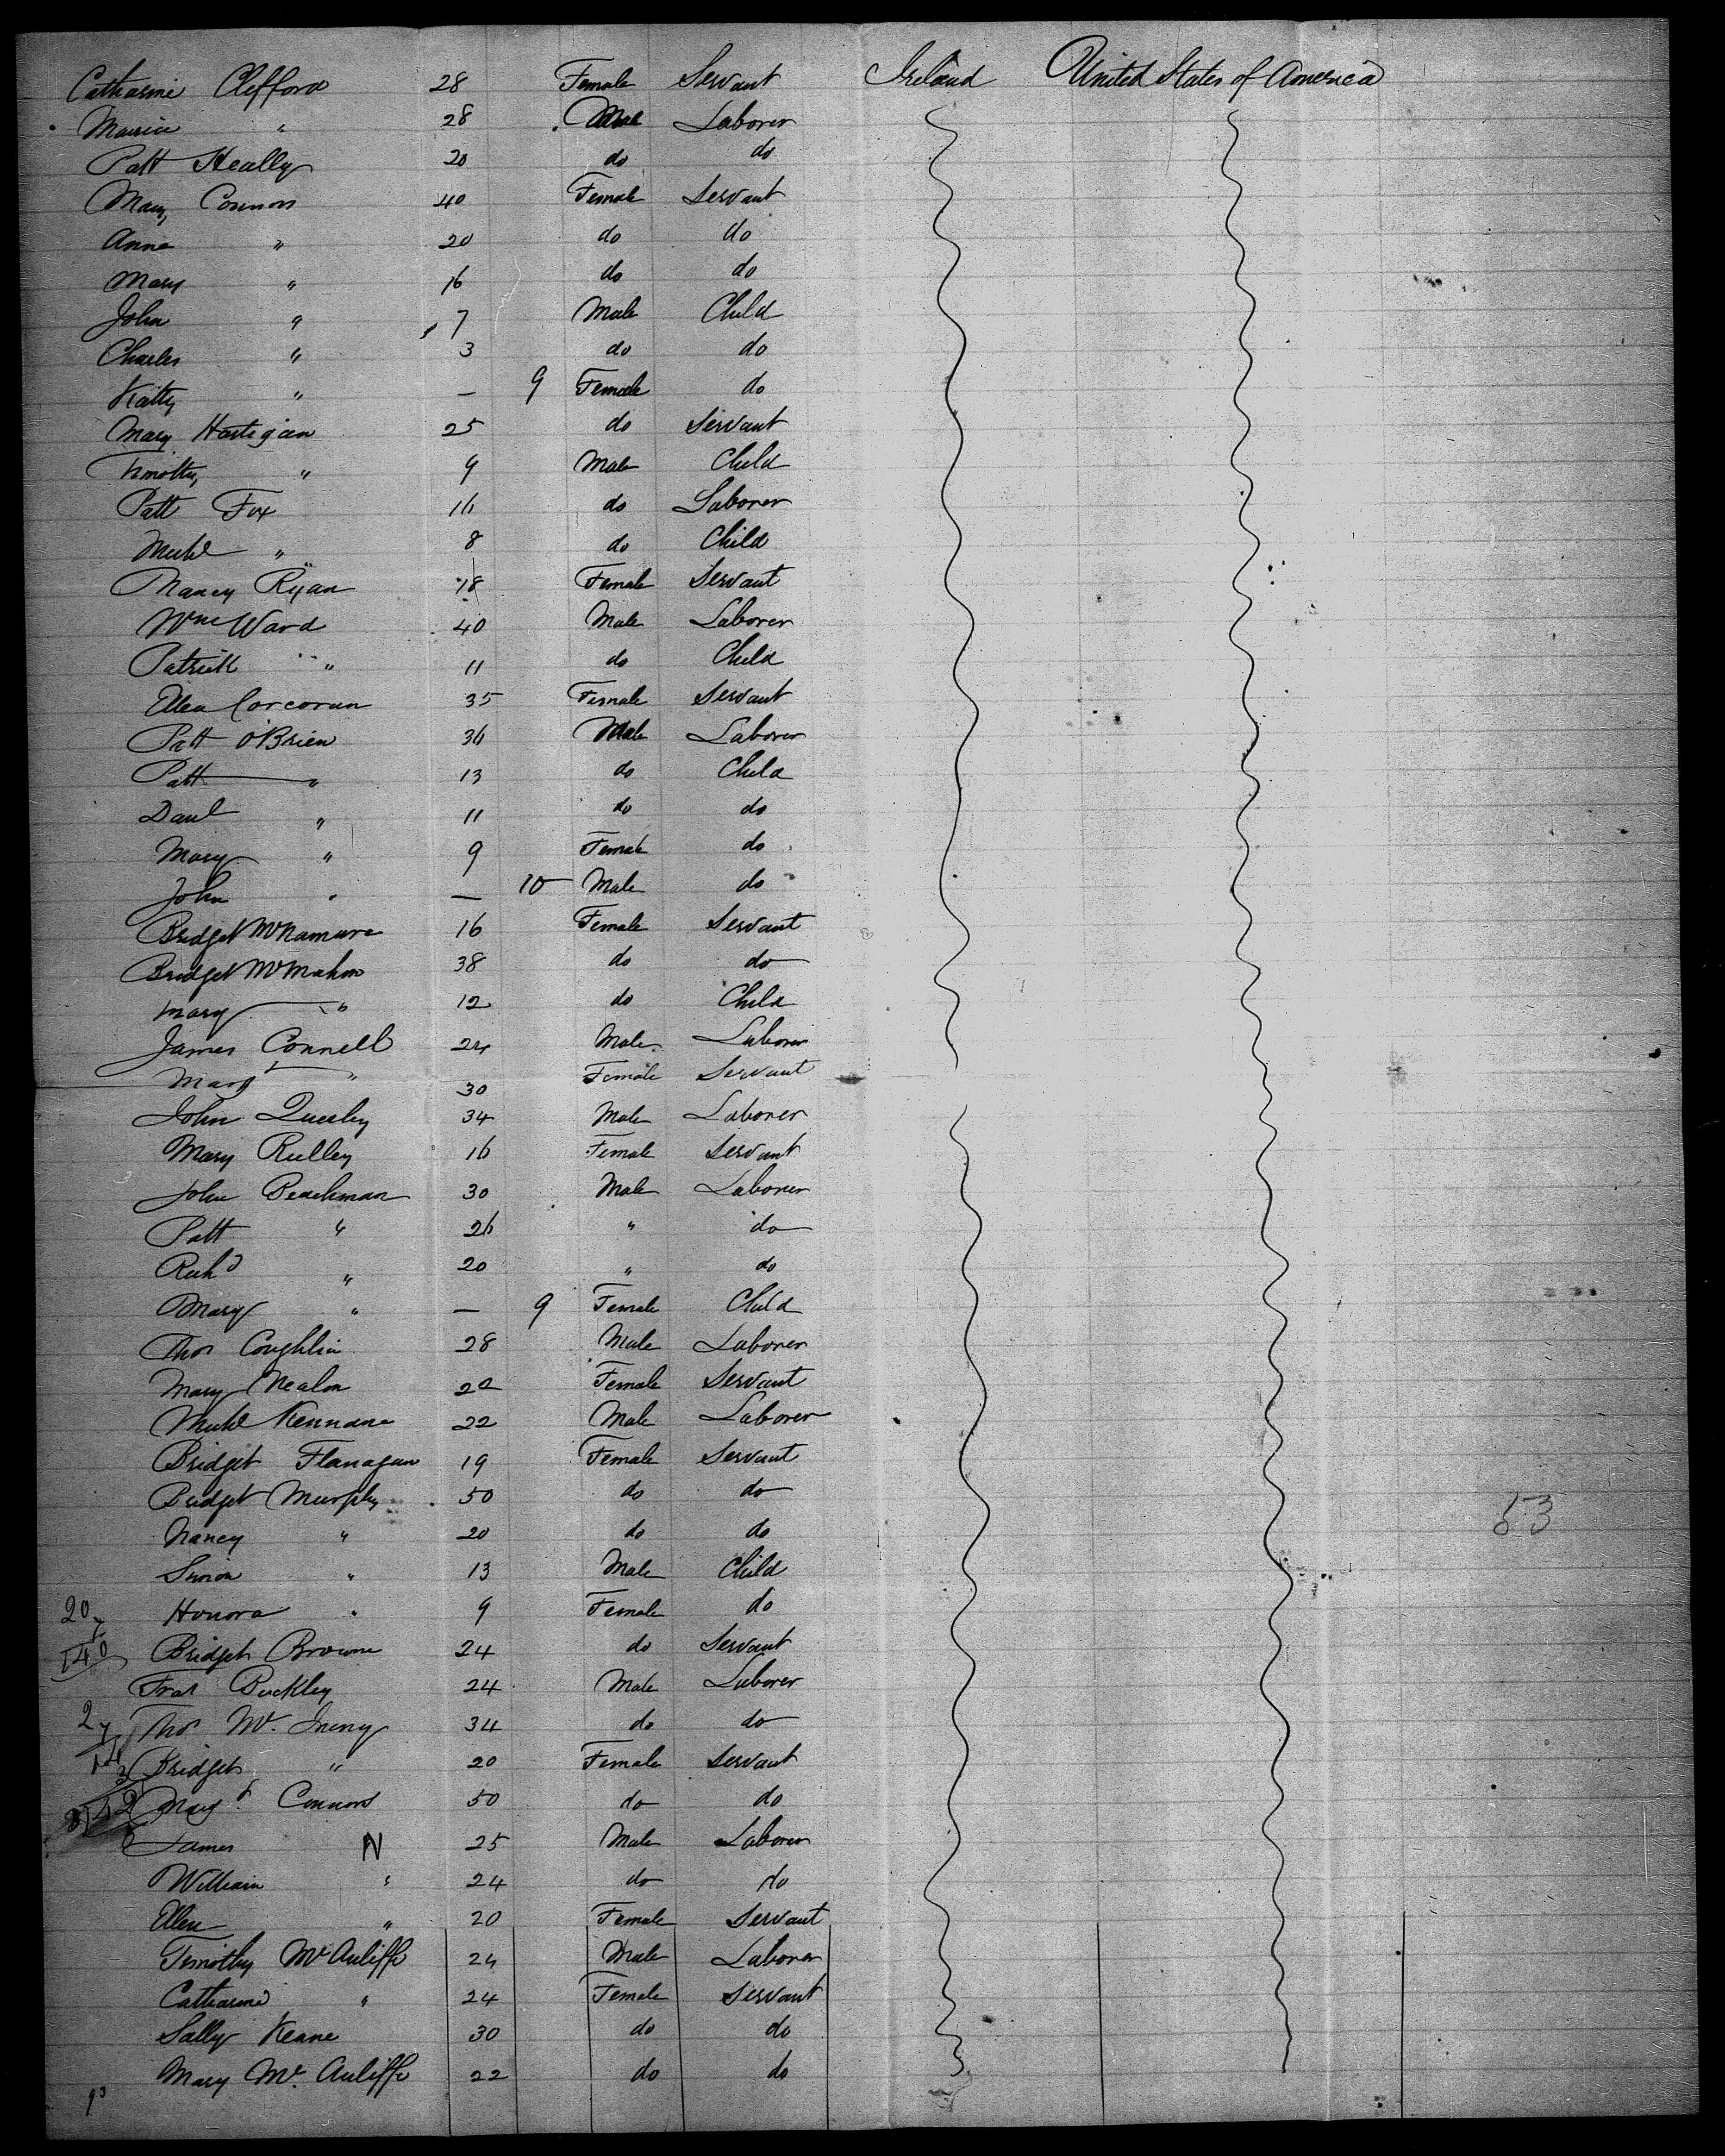 Catharine Clifford 28 Female Servant Ireland United States of America
Maurice " 28 Male Laborer
Patt Heally 20 do do
Mary Connors 40 Female Servant
Anne " 20 do do
Mary " 16 do do
John " 7 Male Child
Charles " 3 do do
Katty " — 9 Female do
Mary Hartigan 25 do Servant
Timothy " 9 Male Child
Patt Fox 16 do Laborer
Michl " 8 do Child
Nancy Ryan 18 Female Servant
Wm Ward 40 Male Laborer
Patrick " 11 do Child
Ellen Corcoran 35 Female Servant
Patt O'Brien 36 Male Laborer
Patt " 13 do Child
Danl " 11 do do
Mary " 9 Female do
John " — 10 Male do
Bridget McNamara 16 Female Servant
Bridget McMahon 38 do do
Mary " 12 do Child
James Connell 24 Male Laborer
Mary " 30 Female Servant
John Queeley 34 Male Laborer
Mary Rulley 16 Female Servant
John Beachman 30 Male Laborer
Patt " 26 " do
Richd " 20 " do
Mary " — 9 Female Child
Thos Coughlin 28 Male Laborer
Mary Nealon 22 Female Servant
Michl Kennane 22 Male Laborer
Bridget Flanagan 19 Female Servant
Bridget Murphy 50 do do 53
Nancy " 20 do do
Simon " 13 Male Child
20 Honora " 9 Female do
140 Bridget Browne 24 do Servant
Fras Buckley 24 Male Laborer
Thos Mc. Ineny 34 do do
Bridget " 20 Female Servant
Margt Connors 50 do do
James N 25 Male Laborer
William " 24 do do
Ellen " 20 Female Servant
Timothy McAuliffe 24 Male Laborer
Catharine " 24 Female Servant
Sally Keane 30 do do
Mary Mc. Auliffe 22 do do